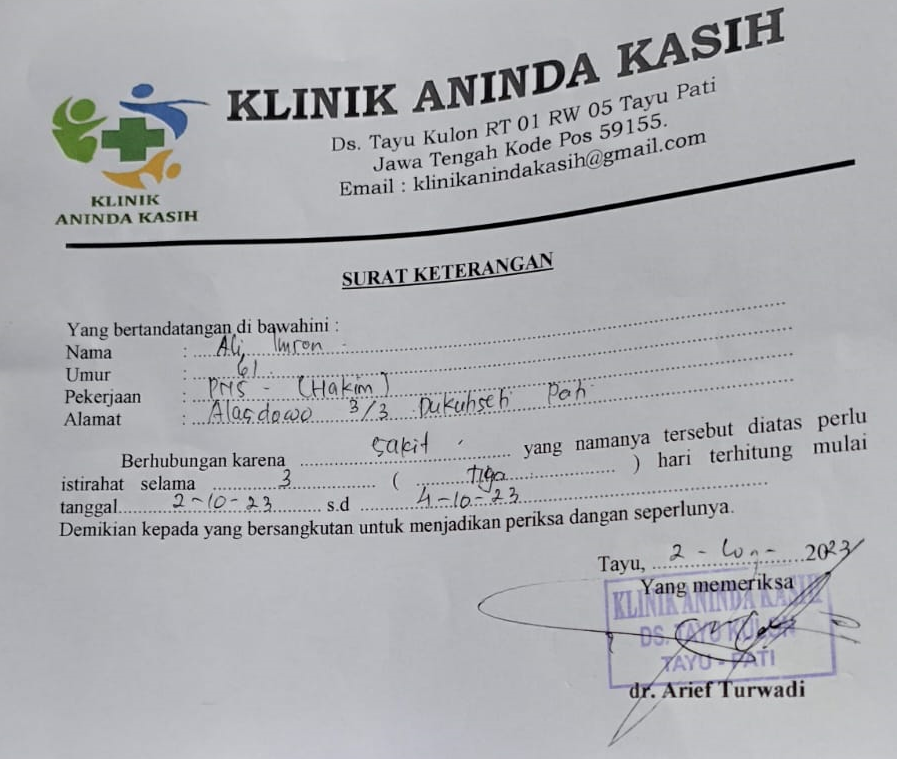 KLINIK ANINDA KASIH
Ds. Tayu Kulon RT 01 RW 05 Tayu Pati
Jawa Tengah Kode Pos 59155.
Email : klinikanindakasih@gmail.com
KLINIK
ANINDA KASIH
SURAT KETERANGAN
Yang bertandatangan di bawahini :
Nama : Ali Imron
Umur : 61
Pekerjaan : PNS - (Hakim)
Alamat : Alasdowo 3/3 Dukuhseti Pati
Berhubungan karena sakit yang namanya tersebut diatas perlu
istirahat selama 3 ( Tiga ) hari terhitung mulai
tanggal 2-10-23 s.d 4-10-23
Demikian kepada yang bersangkutan untuk menjadikan periksa dangan seperlunya.
Tayu, 2 - 2023
Yang memeriksa
KLINIK ANINDA KASIH
DS. TAYU KULON
TAYU - PATI
dr. Arief Turwadi